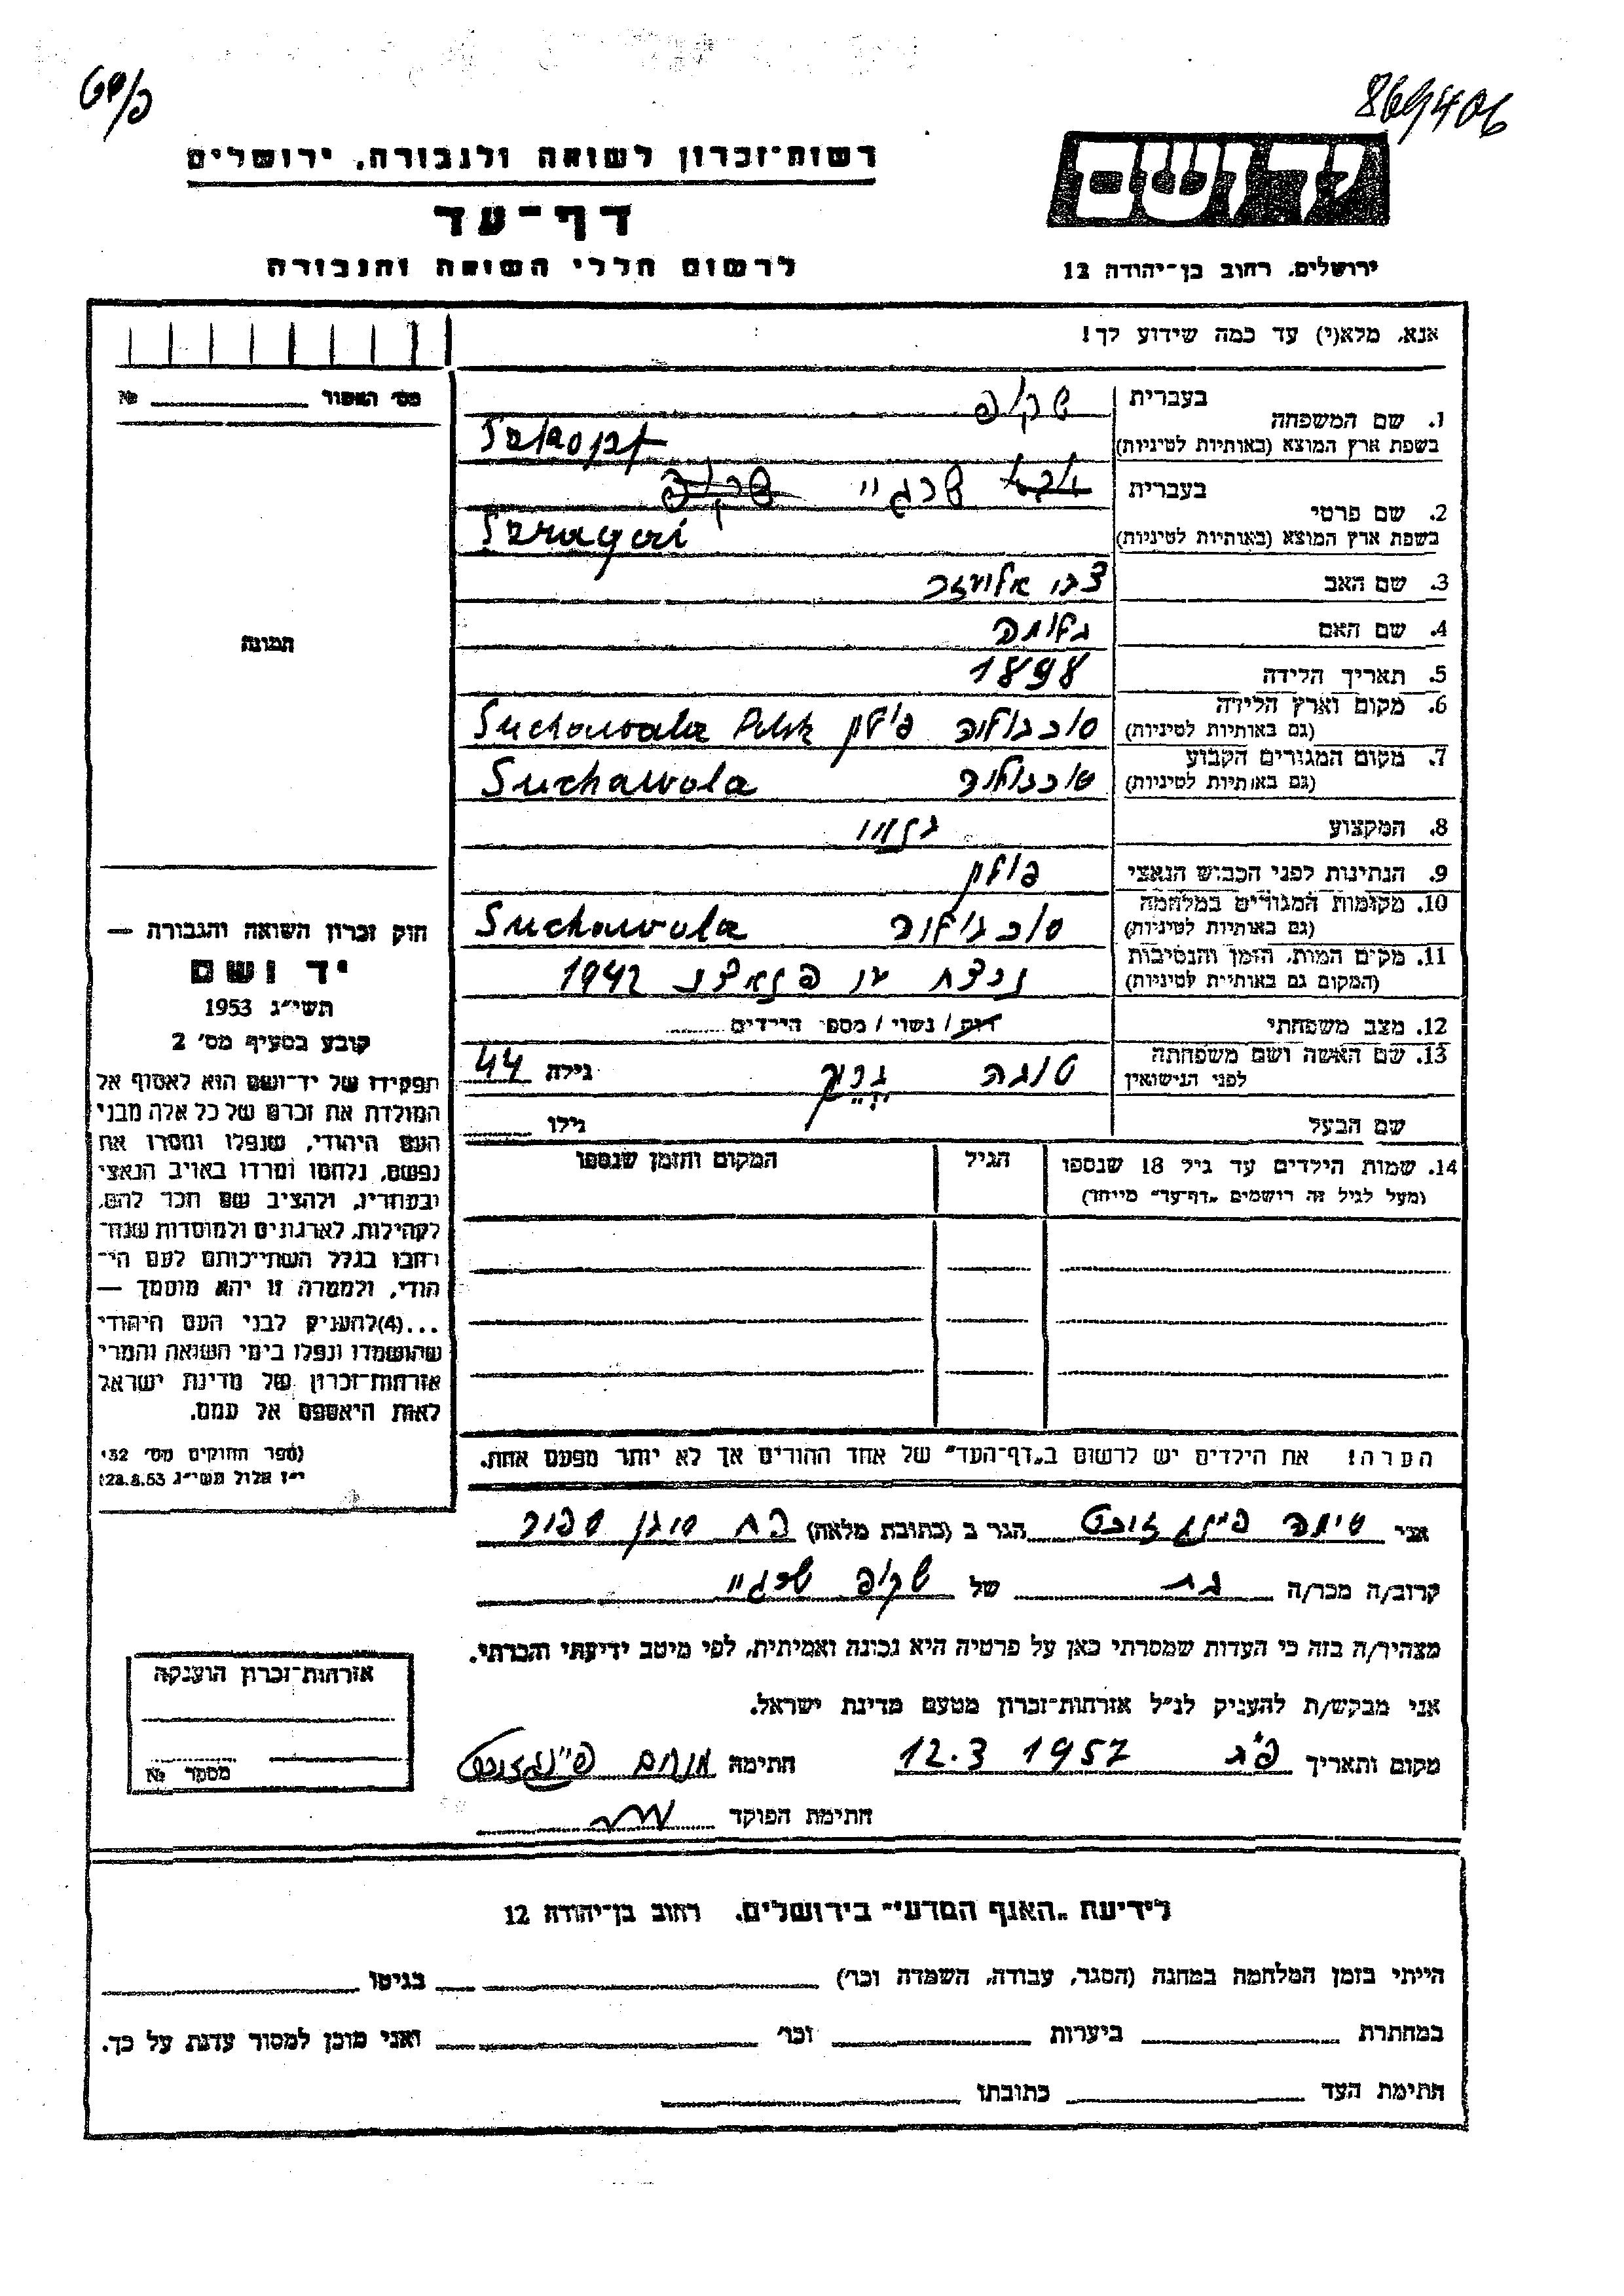 869406
רשות־זכרון לשואה ולגבורה, ירושלים
דף־עד
לרשום חללי השואה והגבורה
יד ושם
ירושלים, רחוב בן־יהודה 12
אנא, מלא(י) עד כמה שידוע לך!
מס׳ האשור № ________
תמונה
חוק זכרון השואה והגבורה —
יד ושם
תשי״ג 1953
קובע בסעיף מס׳ 2
תפקידו של יד־ושם הוא לאסוף אל
המולדת את זכרם של כל אלה מבני
העם היהודי, שנפלו ומסרו את
נפשם, נלחמו ומרדו באויב הנאצי
ובעוזריו, ולהציב שם וזכר להם,
לקהילות, לארגונים ולמוסדות שנח־
רבו בגלל השתייכותם לעם הי־
הודי, ולמטרה זו יהא מוסמך —
...(4)להעניק לבני העם היהודי
שהושמדו ונפלו בימי השואה והמרי
אזרחות־זכרון של מדינת ישראל
לאות היאספם אל עמם.
(ספר החוקים מס׳ 132
י״ז אלול תשי״ג 28.8.53)
1. שם המשפחה בעברית שקופ
בשפת ארץ המוצא (באותיות לטיניות)
2. שם פרטי בעברית שרגיי
בשפת ארץ המוצא (באותיות לטיניות)
3. שם האב צבי אליעזר
4. שם האם
5. תאריך הלידה 1898
6. מקום וארץ הלידה סוכבולה פולין Suchawola Polsk
(גם באותיות לטיניות)
7. מקום המגורים הקבוע סוכבולה Suchawola
(גם באותיות לטיניות)
8. המקצוע
9. הנתינות לפני הכבוש הנאצי פולין
10. מקומות המגורים במלחמה סוכבולה Suchawola
(גם באותיות לטיניות)
11. מקום המות, הזמן והנסיבות נרצח ע״י הנאצים 1942
(המקום גם באותיות לטיניות)
12. מצב משפחתי רוק/ נשוי/ מספר הילדים
13. שם האשה ושם משפחתה לפני הנישואין גילה 44
שם הבעל גילו
14. שמות הילדים עד גיל 18 שנספו הגיל המקום והזמן שנספו
(מעל לגיל זה רושמים „דף־עד״ מיוחד)
הערה! את הילדים יש לרשום ב„דף־העד״ של אחד ההורים אך לא יותר מפעם אחת.
אני הגר ב (כתובת מלאה)
קרוב/ה מכר/ה בת של שקופ שרגיי
מצהיר/ה בזה כי העדות שמסרתי כאן על פרטיה היא נכונה ואמיתית, לפי מיטב ידיעתי והכרתי.
אני מבקש/ת להעניק לנ״ל אזרחות־זכרון מטעם מדינת ישראל.
מקום ותאריך 12.3 1957 חתימה
חתימת הפוקד
אזרחות־זכרון הוענקה
מספר №
לידיעת „האגף המדעי״ בירושלים, רחוב בן־יהודה 12
הייתי בזמן המלחמה במחנה (הסגר, עבודה, השמדה וכר׳) ________ בגיטו ________
במחתרת ________ ביערות ________ וכר׳ ________ ואני מוכן למסור עדות על כך.
חתימת העד ________ כתובתו ________